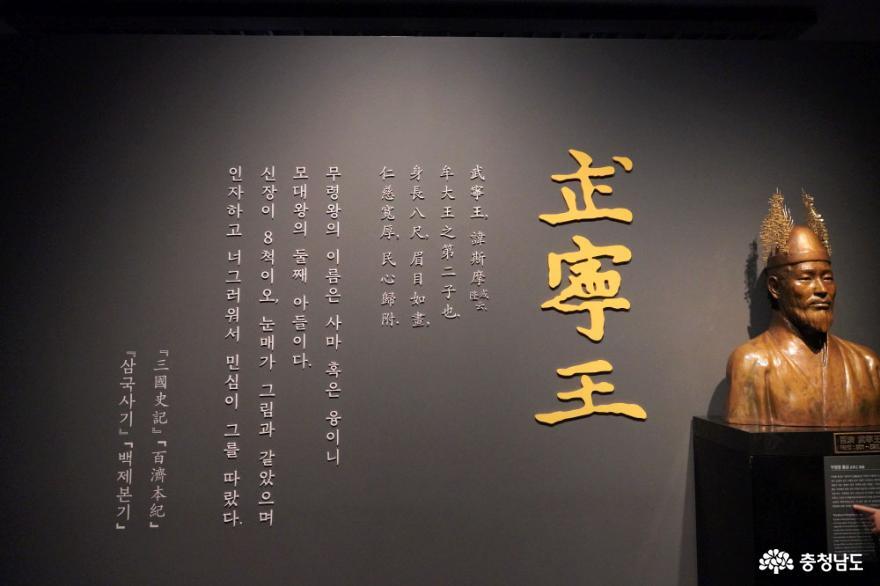 武寧王
武寧王, 諱斯摩 或云隆
牟大王之第二子也.
身長八尺, 眉目如畫,
仁慈寬厚, 民心歸附.
무령왕의 이름은 사마 혹은 융이니
모대왕의 둘째 아들이다.
신장이 8척이오, 눈매가 그림과 같았으며
인자하고 너그러워서 민심이 그를 따랐다.
『三國史記』「百濟本紀」
『삼국사기』「백제본기」
百濟 武寧王
충청남도